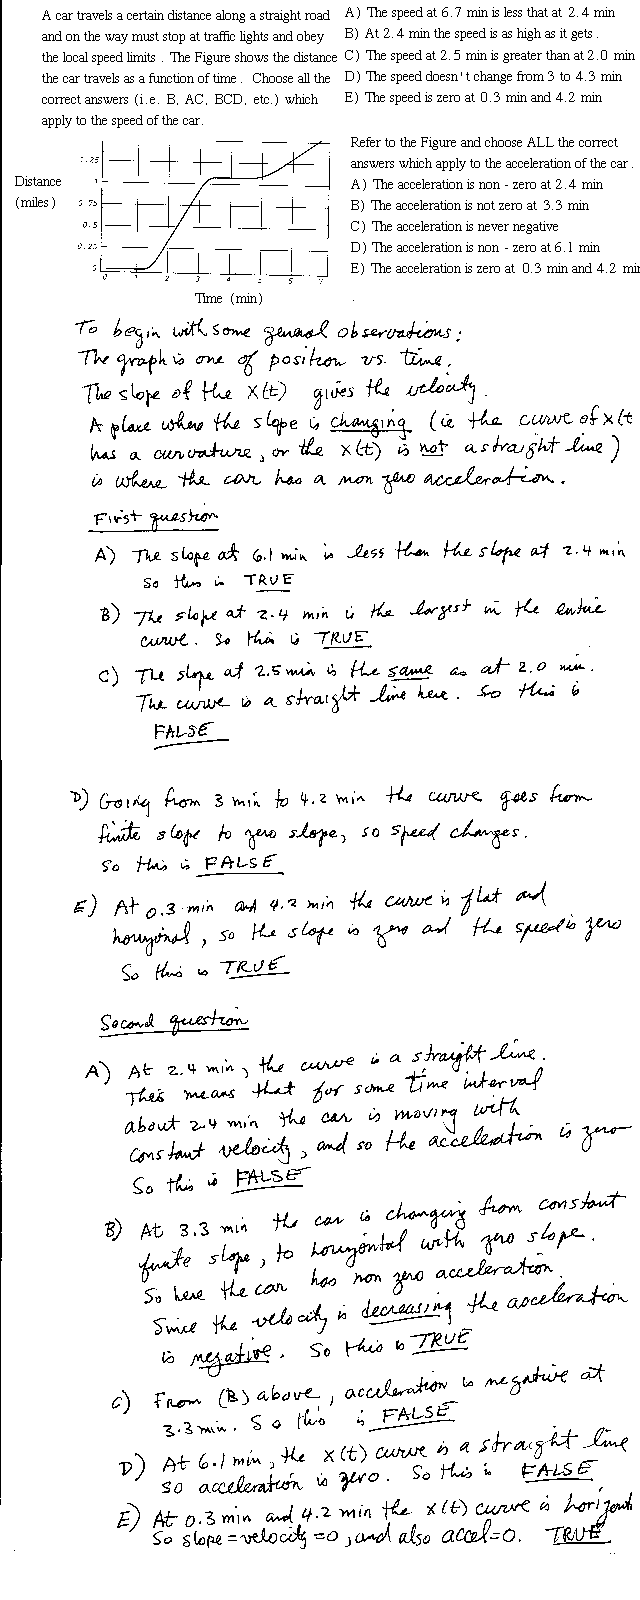 A car travels a certain distance along a straight road
and on the way must stop at traffic lights and obey
the local speed limits . The Figure shows the distance
the car travels as a function of time . Choose all the
correct answers (i.e. B, AC, BCD, etc.) which
apply to the speed of the car.
A) The speed at 6.7 min is less that at 2.4 min
B) At 2.4 min the speed is as high as it gets .
C) The speed at 2.5 min is greater than at 2.0 min
D) The speed doesn't change from 3 to 4.3 min
E) The speed is zero at 0.3 min and 4.2 min
Distance
(miles)
1.25
1
0.5
0.25
0 1 2 3 5
Time (min)
Refer to the Figure and choose ALL the correct
answers which apply to the acceleration of the car.
A) The acceleration is non - zero at 2.4 min
B) The acceleration is not zero at 3.3 min
C) The acceleration is never negative
D) The acceleration is non - zero at 6.1 min
E) The acceleration is zero at 0.3 min and 4.2 mi
To begin with some general observations:
The graph is one of position vs. time.
The slope of the x(t) gives the velocity.
A place where the slope is changing (ie the curve of x(t
has a curvature, or the x(t) is not a straight line)
is where the car has a non zero acceleration.
First question
A) The slope at 6.1 min is less than the slope at 2.4 min
So this is TRUE
B) The slope at 2.4 min is the largest in the entire
curve. So this is TRUE
C) The slope at 2.5 min is the same as at 2.0 min.
The curve is a straight line here. So this is
FALSE
D) Going from 3 min to 4.2 min the curve goes from
finite slope to zero slope, so speed changes.
So this is FALSE
E) At 0.3 min and 4.2 min the curve is flat and
horizonal, so the slope is zero and the speed is zero
So this is TRUE
Second question
A) At 2.4 min, the curve is a straight line.
This means that for some time interval
about 2.4 min the car is moving with
constant velocity, and so the acceleration is zero
So this is FALSE
B) At 3.3 min the car is changing from constant
finite slope, to horizontal with zero slope.
So here the car has non zero acceleration
Since the velocity is decreasing the acceleration
is negative. So this is TRUE
C) From (B) above, acceleration is negative at
3.3 min. So this is FALSE
D) At 6.1 min, the x(t) curve is a straight line
so acceleration is zero. So this is FALSE
E) At 0.3 min and 4.2 min the x(t) curve is horizont
So slope = velocity = 0, and also accel = 0. TRUE